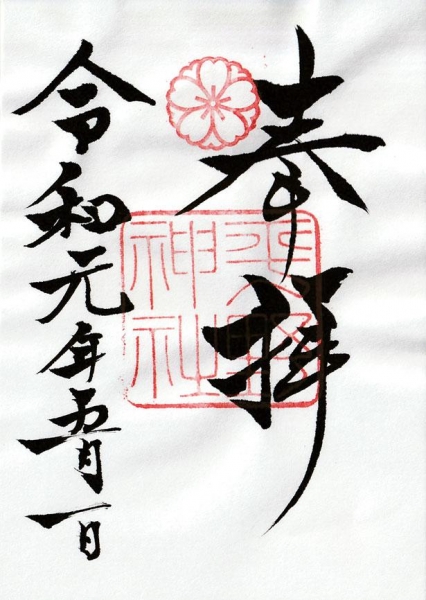 奉拝
平野神社
令和元年五月一日